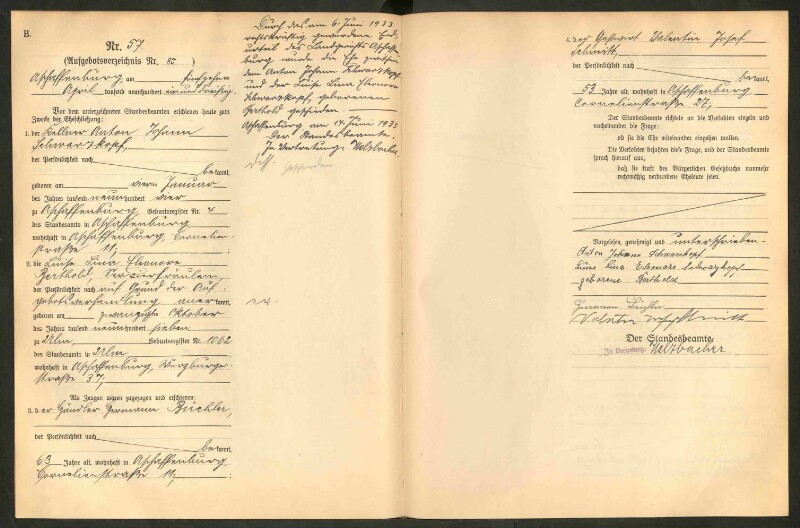 B.
Nr. 57
(Aufgebotsverzeichnis Nr. 80)
Aschaffenburg am fünfzehn
April tausend neunhundert einunddreißig.
Vor dem unterzeichneten Standesbeamten erschienen heute zum
Zwecke der Eheschließung:
1. der Kellner Anton Johann
Schwarzkopf,
der Persönlichkeit nach
bekannt,
geboren am vierten Januar
des Jahres tausend neunhundert vier
zu Aschaffenburg, Geburtsregister Nr. 4
des Standesamts in Aschaffenburg
wohnhaft in Aschaffenburg, Cornelien-
straße 11;
2. die Luise Lina Eleonore
Berthold, Servierfräulein,
der Persönlichkeit nach auf Grund der Auf-
gebotsverhandlung anerkannt,
geboren am zwanzigsten Oktober
des Jahres tausend neunhundert sieben
zu Ulm, Geburtsregister Nr. 1062
des Standesamts in Ulm
wohnhaft in Aschaffenburg, Würzburger-
straße 37;
Als Zeugen waren zugezogen und erschienen:
3. der Händler Hermann Büchler,
der Persönlichkeit nach
bekannt,
63 Jahre alt, wohnhaft in Aschaffenburg,
Cornelienstraße 11;
Durch das am 6. Juni 1933
rechtskräftig gewordene End-
urteil des Landgerichts Aschaffen-
burg wurde die Ehe zwischen
dem Anton Johann Schwarzkopf
und der Luise Lina Eleonore
Schwarzkopf, geborenen
Berthold geschieden.
Aschaffenburg am 14. Juni 1933.
Der Standesbeamte.
In Vertretung: Welzbacher.
4. der Gastwirt Valentin Josef
Schmitt,
der Persönlichkeit nach
bekannt,
53 Jahre alt, wohnhaft in Aschaffenburg
Cornelienstraße 27,
Der Standesbeamte richtete an die Verlobten einzeln und
nacheinander die Frage:
ob sie die Ehe miteinander eingehen wollen.
Die Verlobten bejahten diese Frage, und der Standesbeamte
sprach hierauf aus,
daß sie kraft des Bürgerlichen Gesetzbuchs nunmehr
rechtmäßig verbundene Eheleute seien.
Vorgelesen, genehmigt und unterschrieben.
Anton Johann Schwarzkopf
Luise Lina Eleonore Schwarzkopf
geborene Berthold
Hermann Büchler
Valentin Josef Schmitt
Der Standesbeamte.
In Vertretung: Welzbacher.